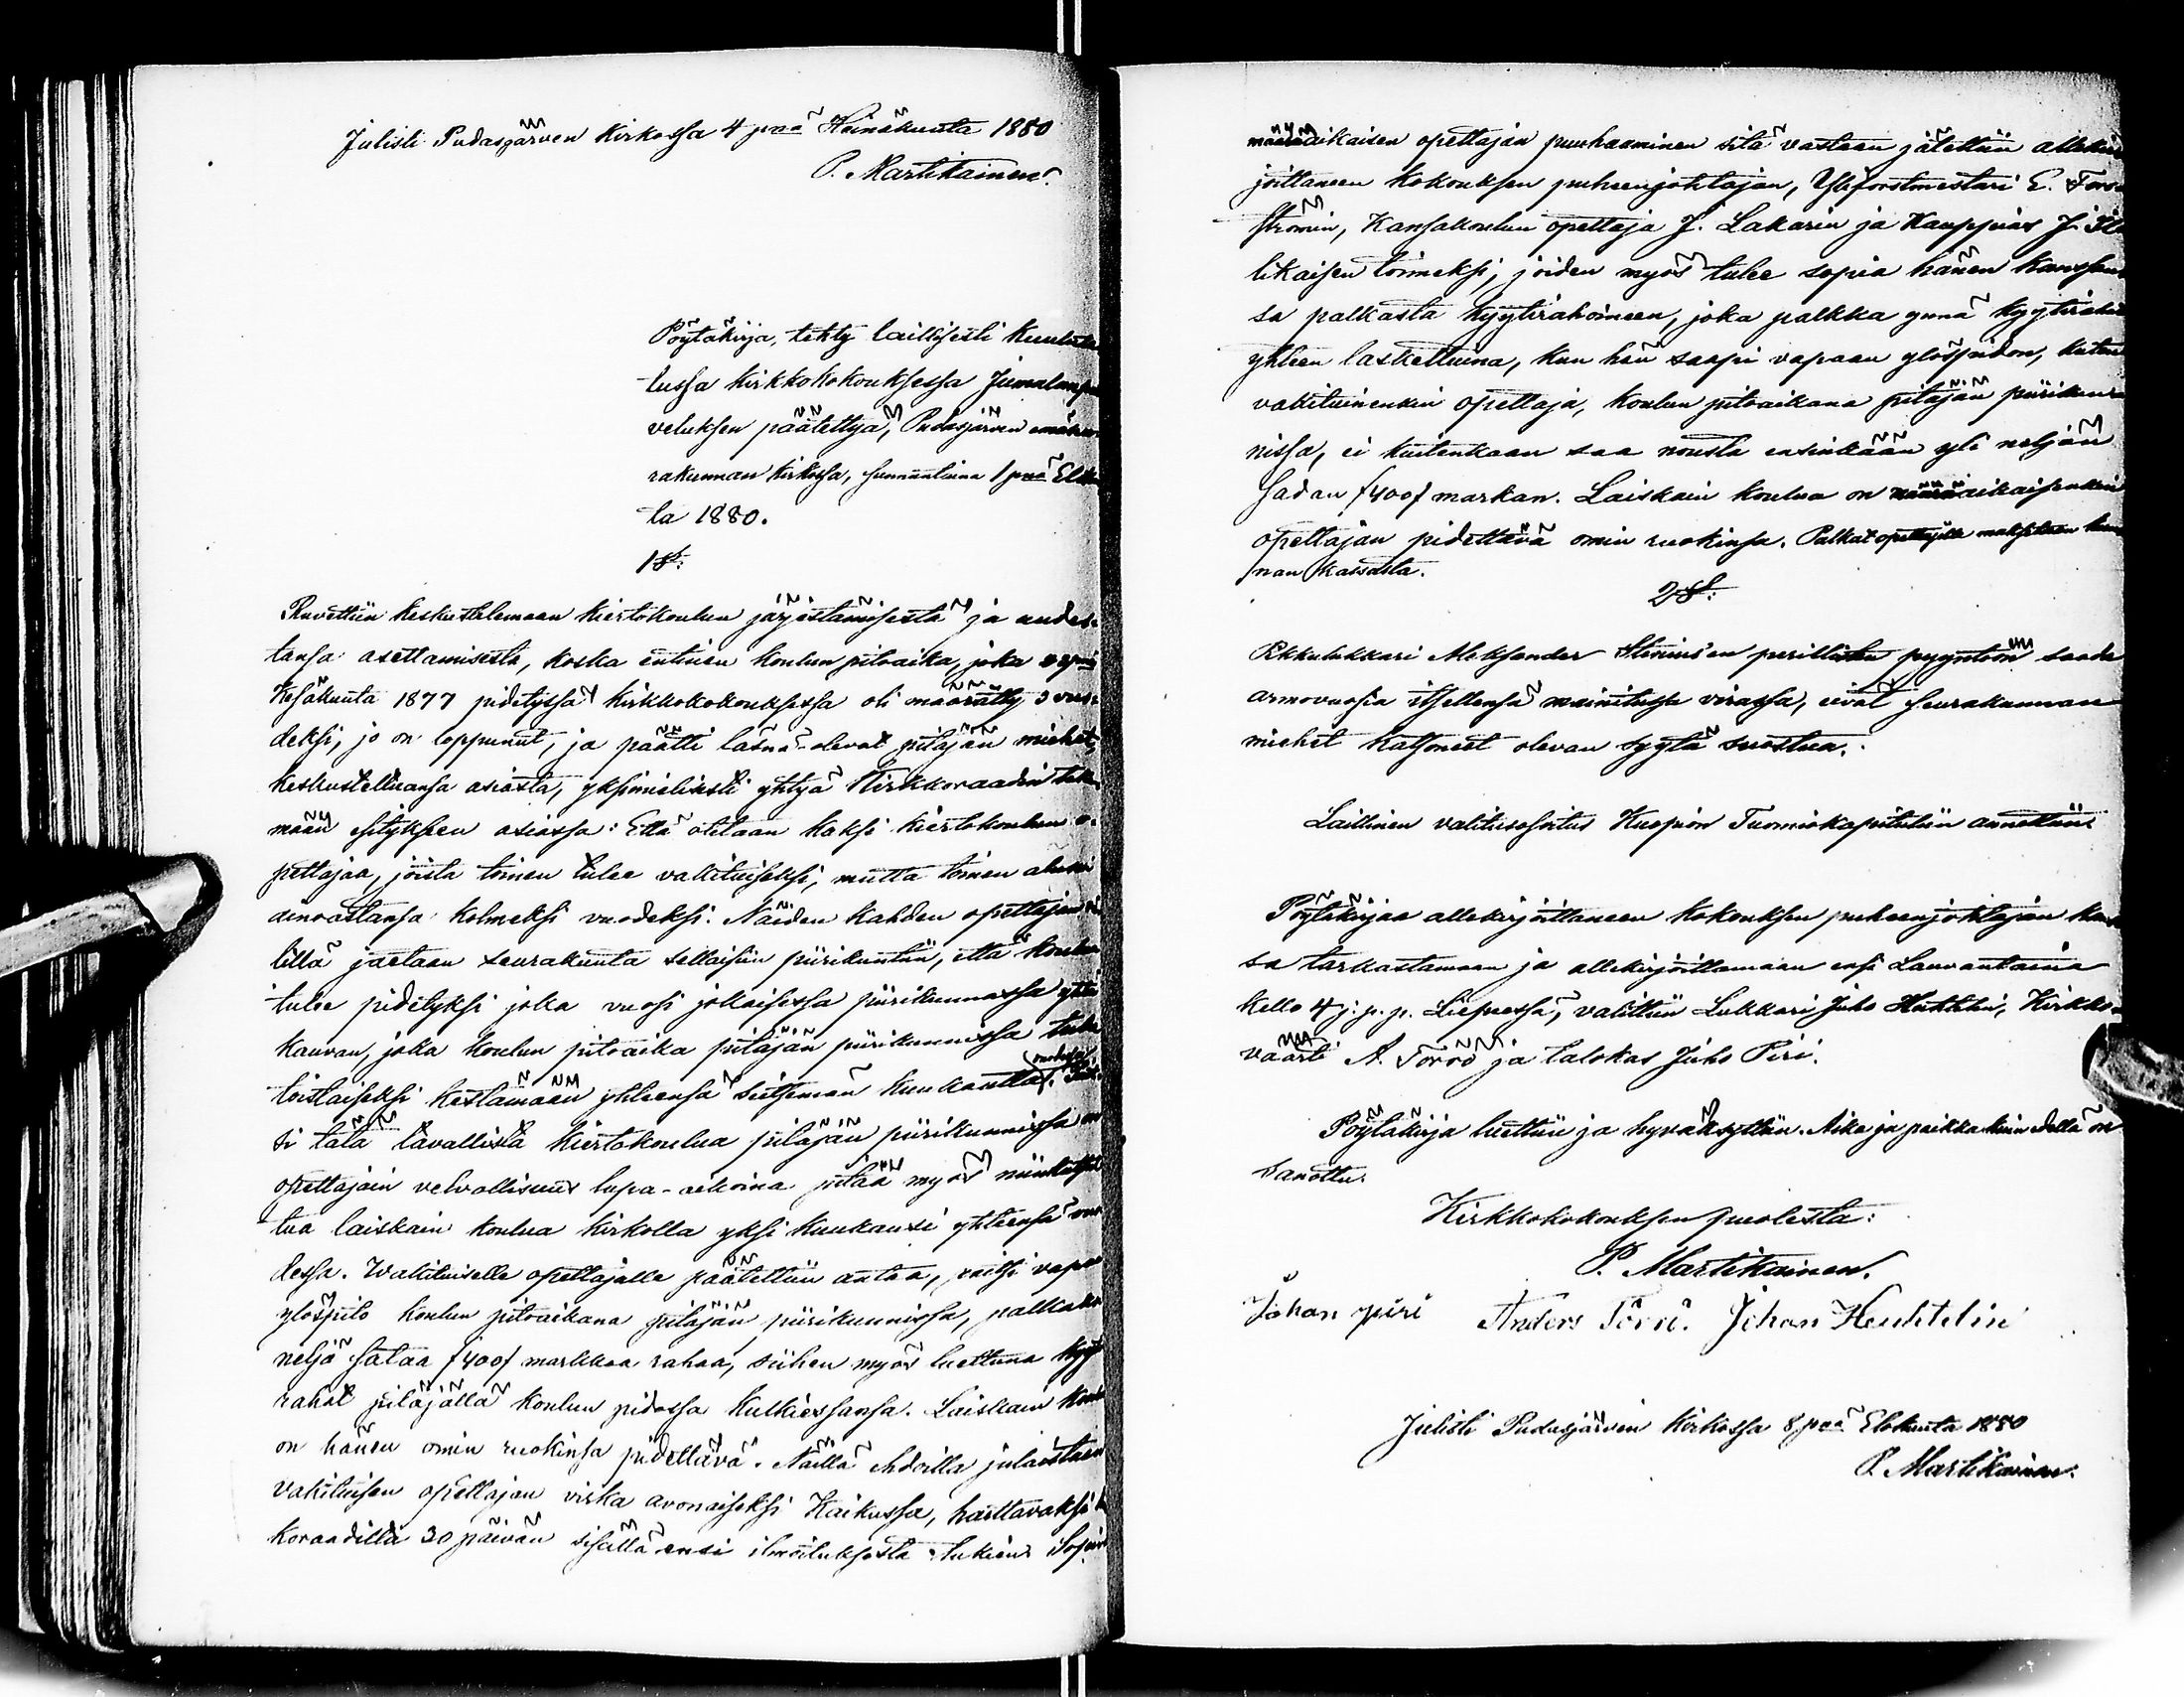 Julisti Pudasjärven Kirkossa 4 pnä Heinäkuuta 1880
P. Martikainen.
Pöytäkirja, tehty laillisesti kuulute-
tussa kirkkokokouksessa Jumalanpal
veluksen päätettyä, Pudasjärven emäseu-
rakunnan kirkossa, sunnuntaina 1 pnä Elok
ta 1880.
1 §:
Ruvettiin keskustelemaan kiertokoulun järjestämisestä ja uudes-
tansa asettamisesta, koska entinen koulun pitoaika, joka
Kesäkuuta 1877 pidetyssä kirkkokokouksessa oli määrätty 3 vuo-
deksi, jo on loppunut, ja päätti läsnä-olevat pitäjän miehet,
keskusteltuansa asiasta, yksimielisesti yhtyä Kirkkoraadin teke-
mään esitykseen asiassa: Että otetaan kaksi kiertokoulun o-
pettajaa, joista toinen tulee vakituiseksi, mutta toinen aluksi
ainoastansa kolmeksi vuodeksi. Näiden kahden opettajan vä
lillä jaetaan seurakunta sellaisiin piirikuntiin, että koulua
tulee pidetyksi joka vuosi jokaisessa piirikunnassa yhtä
kauvan, joka koulun pitoaika pitäjän piirikunnissa tulee
toistaiseksi kestämään yhteensä seitsemän kuukautta vuodessa. Pait-
si tätä tavallista kiertokoulua pitäjän piirikunnissa on
opettajain velvollisuus lupa-aikoina pitää myös niinkutsut
tua laiskain koulua kirkolla yksi kuukausi yhteensä vuo
dessa. Wakituiselle opettajalle päätettiin antaa, paitsi vapaa
ylöspito koulun pitoaikana pitäjän piirikunnissa, palkkaa
neljä sataa /400/ markkaa rahaa, siihen myös luettuna kyyt
rahat pitäjällä koulun pidossa kulkiessansa. Laiskain koulu
on hänen omin ruokinsa pidettävä. Näillä ehdoilla julaistaan
vakituisen opettajan virka avonaiseksi Kaikussa, haettavaksi k
koraadilta 30 päivän sisällä ensi ilmoituksesta lukien. Sopiva
määräaikaisen opettajan puuhaaminen sitä vastaan jätettiin allekir
joittaneen kokouksen puheenjohtajan, Yliforstmestari E. Fors
strömin, Kansakoulun opettaja J. Lakarin ja Kauppias J.
likaisen toimeksi, joiden myös tulee sopia hänen kanssan
sa palkasta kyytirahoineen, joka palkka ynnä kyytirahat
yhteen laskettuina, kun hän saapi vapaan ylöspidon, kuten
vakituinenkin opettaja, koulun pitoaikana pitäjän piirikun-
nissa, ei kuitenkaan saa nousta ensinkään yli neljän
sadan /400/ markan. Laiskain koulua on määräaikaisenkin
opettajan pidettävä omin ruokinsa. Palkat opettajille maksetaan kun
nan kassasta.
2 §:
Pkkulukkari Aleksander Stenius'en perillisten pyyntöön saada
armovuosia itsellensä mainitussa virassa, eivät seurakunnan
miehet katsoneet olevan syytä suostua.
Laillinen valitusosoitus Kuopion Tuomiokapituliin annettiin.
Pöytäkirjaa allekirjoittaneen kokouksen puheenjohtajan kans
sa tarkastamaan ja allekirjoittamaan ensi Lauvantaina
kello 4 j. p. p. Liepeessä, valittiin Lukkari Juho Heuhtelin, Kirkko-
väärti A. Törrö ja talokas Juho Piri.
Pöytäkirja luettiin ja hyväksyttiin. Aika ja paikka kuin edellä on
sanottu.
Kirkkokokouksen puolesta:
P. Martikainen.
Johan piri Anders Törrö. Johan Heuhtelin
Julisti Pudasjärven Kirkossa 8 pnä Elokuuta 1880
P. Martikainen.